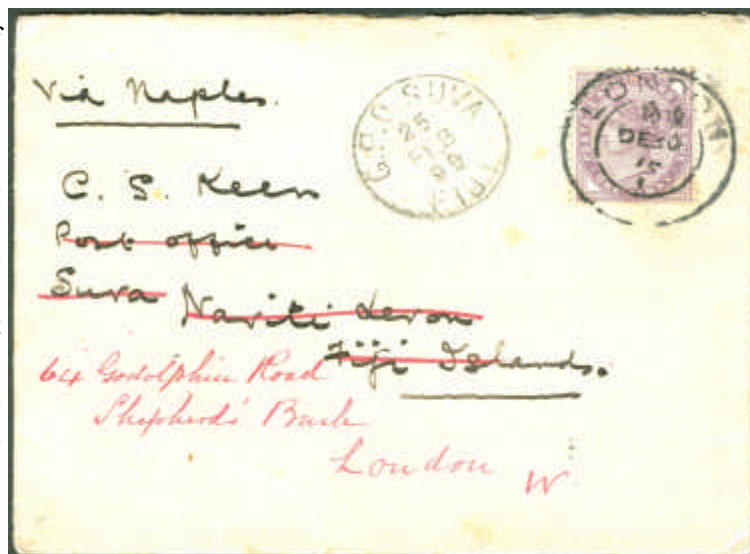 Via Naples.
G.P.O SUVA
FIJI
LONDON
DE
C. S. Keen
Post office
Suva Naviti Levon
Fiji Islands.
64 Godolphin Road
Shepherds' Bush
London W